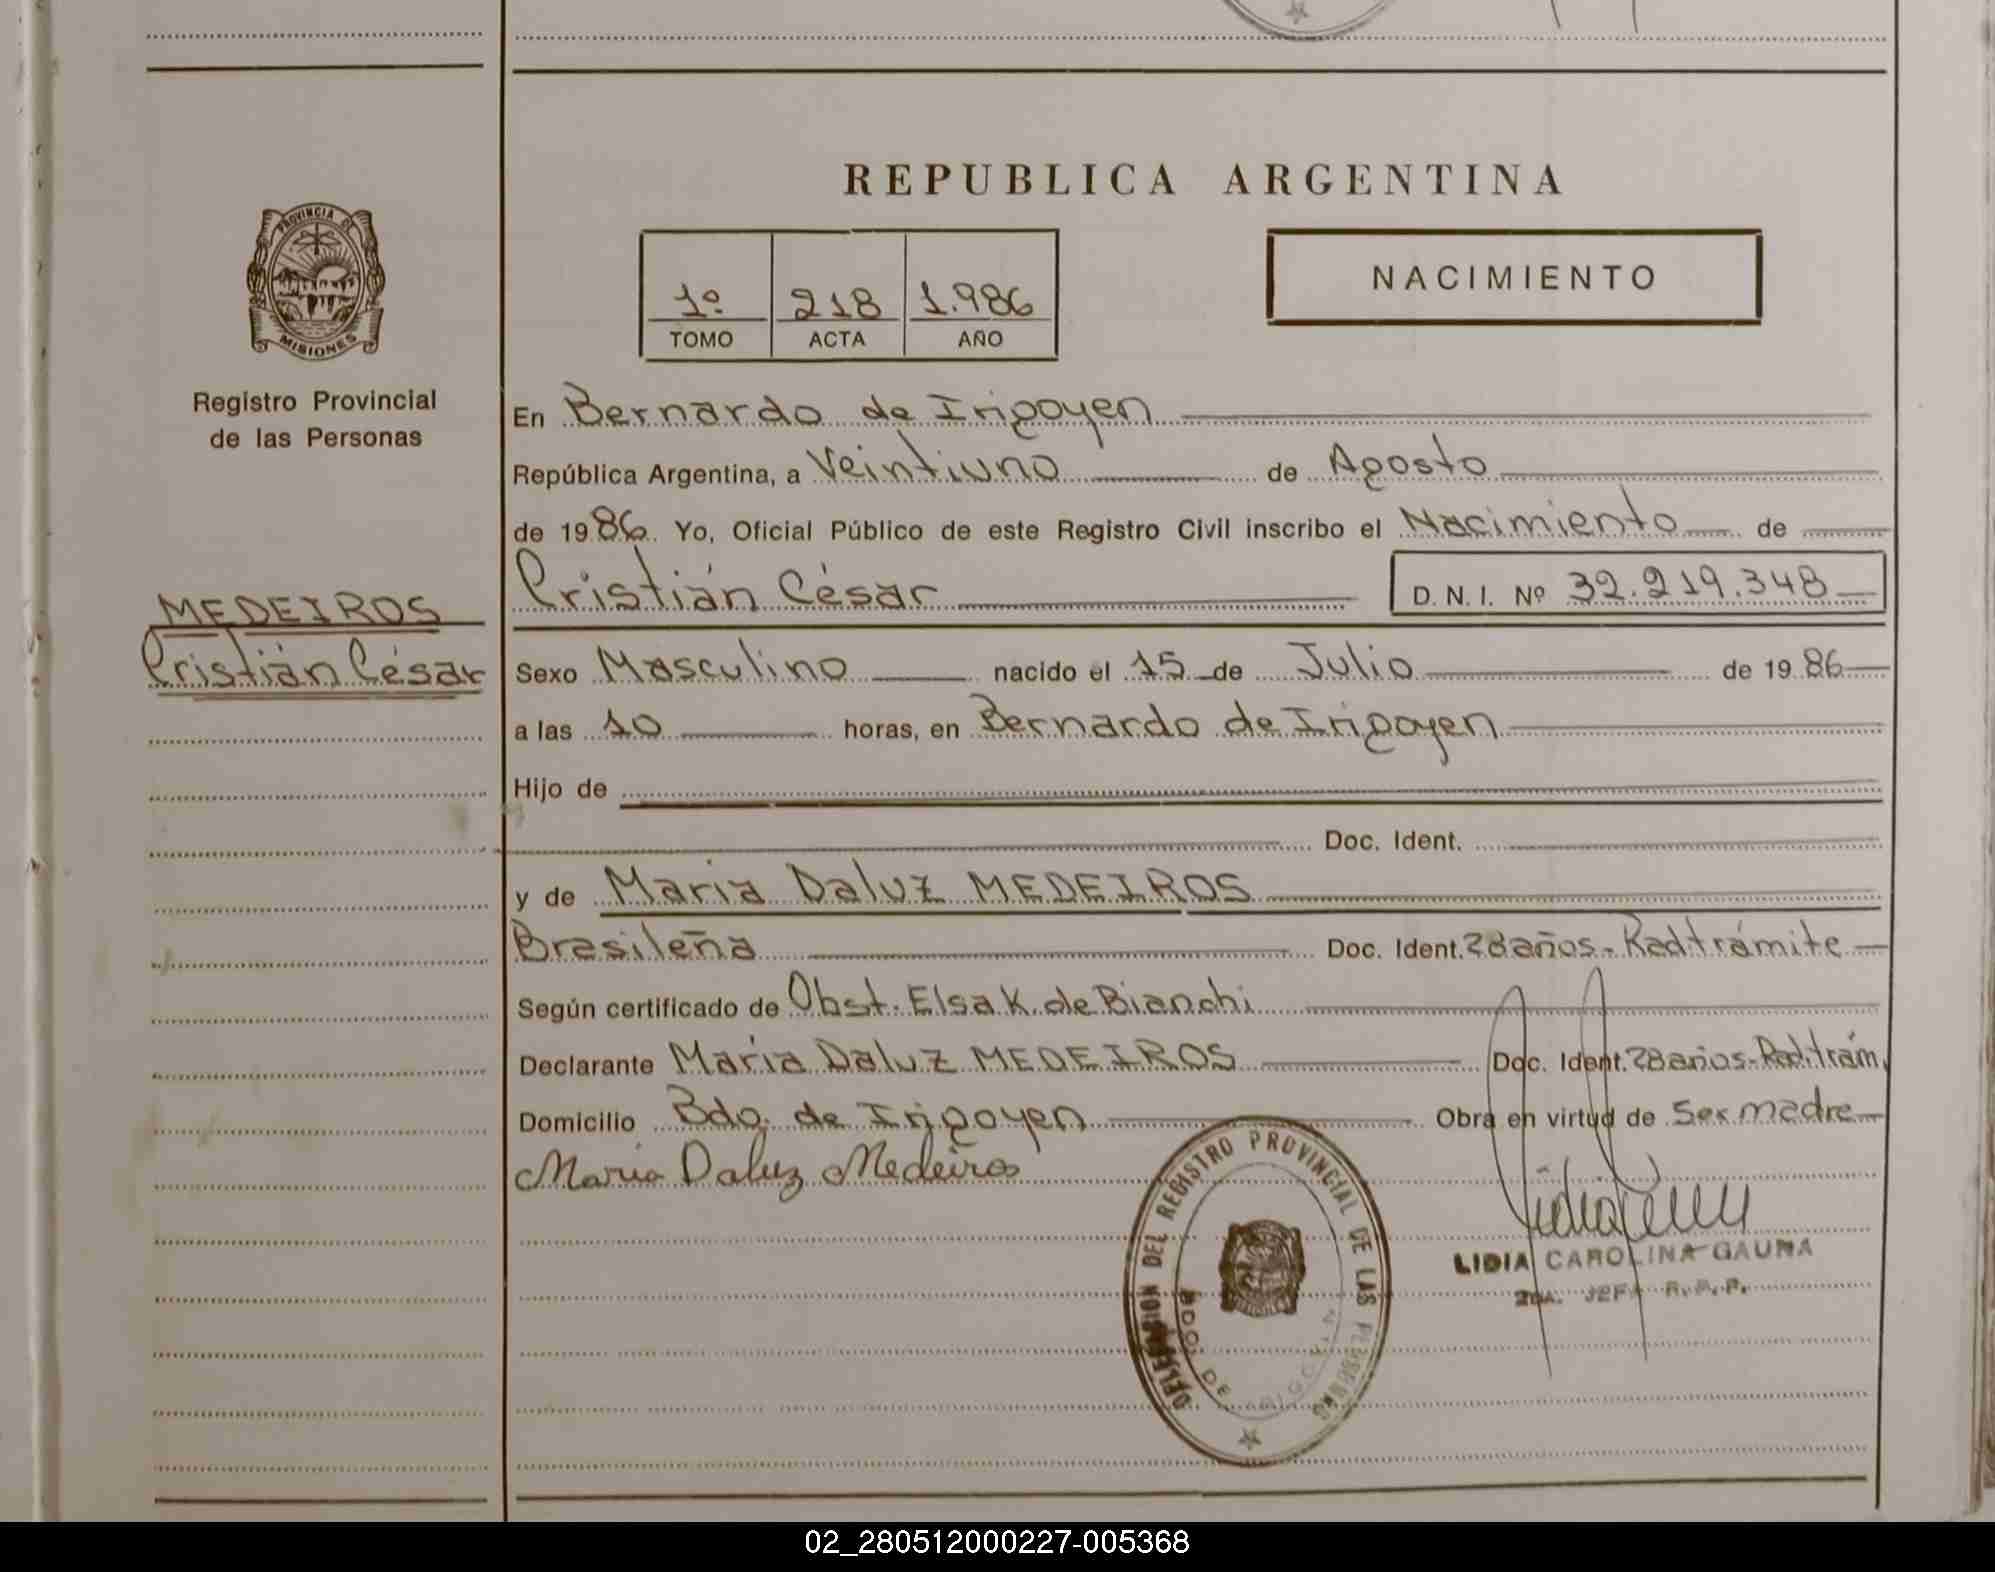 REPUBLICA ARGENTINA
PROVINCIA DE
MISIONES
Registro Provincial
de las Personas
MEDEIROS
Cristián César
1º 218 1.986
TOMO ACTA AÑO
NACIMIENTO
En Bernardo de Irigoyen
República Argentina, a Veintiuno de Agosto
de 1986. Yo, Oficial Público de este Registro Civil inscribo el Nacimiento de
Cristián César D. N. I. Nº 32.219.348
Sexo Masculino nacido el 15 de Julio de 1986
a las 10 horas, en Bernardo de Irigoyen
Hijo de
Doc. Ident.
y de Maria Daluz MEDEIROS
Brasileña Doc. Ident. 28 años - Rad trámite
Según certificado de Obst. Elsa K. de Bianchi
Declarante Maria Daluz MEDEIROS Doc. Ident. 28 años - Rad. trám.
Domicilio Bdo. de Irigoyen Obra en virtud de Ser madre
Maria Daluz Medeiros
DELEGACION DEL REGISTRO PROVINCIAL DE LAS PERSONAS
BDO. DE IRIGOYEN
LIDIA CAROLINA GAUNA
2DA. JEFA R. P. P.
02_280512000227-005368